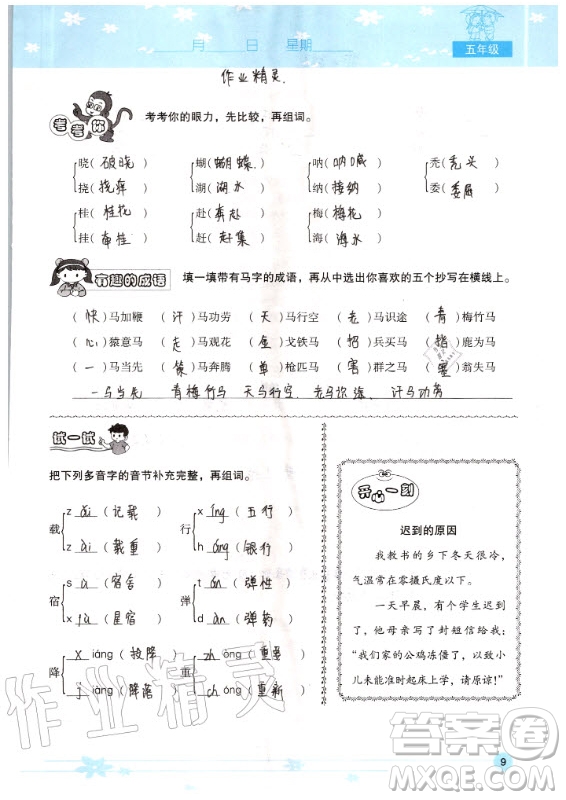 月 日 星期
五年级
作业精灵.
考考你
考考你的眼力，先比较，再组词。
晓（破晓） 蝴（蝴蝶） 呐（呐喊） 秃（秃头）
挠（挠痒） 湖（湖水） 纳（接纳） 委（委屈）
桂（桂花） 赴（奔赴） 梅（梅花）
挂（ 挂） 赶（赶集） 海（海水）
有趣的成语
填一填带有马字的成语，再从中选出你喜欢的五个抄写在横线上。
（快）马加鞭 （汗）马功劳 （天）马行空 （老）马识途 （青）梅竹马
（心）猿意马 （走）马观花 （金）戈铁马 （招）兵买马 （指）鹿为马
（一）马当先 （策）马奔腾 （单）枪匹马 （害）群之马 （塞）翁失马
一马当先 青梅竹马 天马行空. 老马识途、汗马功劳
试一试
把下列多音字的音节补充完整，再组词。
载 z ǎi （记载） 行 x íng （五行）
z ài （载重） h áng （银行）
宿 s ù （宿舍） 弹 t án （弹性）
x iù （星宿） d àn （弹药）
降 x iáng （投降） 重 ch óng （重要）
j iàng （降落） zh òng （重新）
开心一刻
迟到的原因
我教书的乡下冬天很冷，
气温常在零摄氏度以下。
一天早晨，有个学生迟到
了，他对我鞠躬后，写封短信给我：
“我们家的公鸡冻僵了，以致小
儿未能准时起床上学，请原谅！”
作业精灵
答案圈
MXQE.COM
9